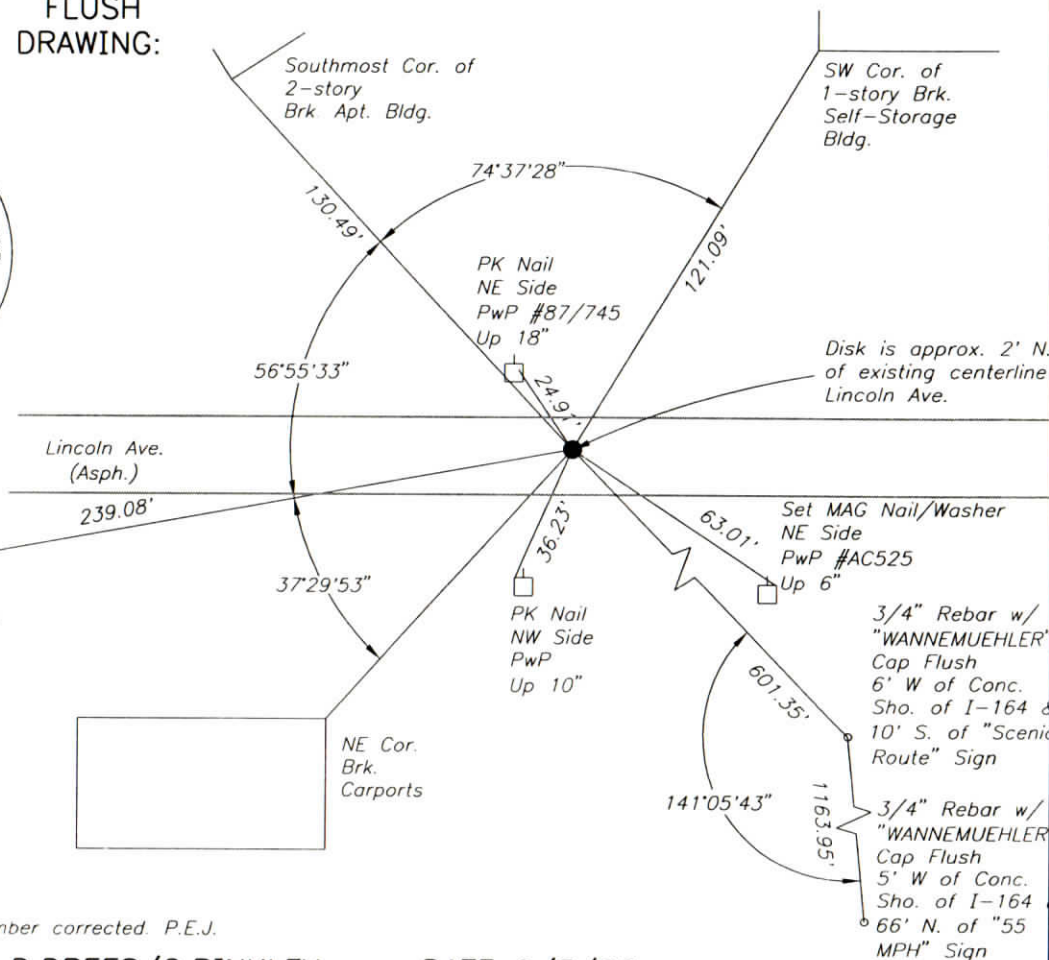 FLUSH
DRAWING:
Southmost Cor. of
2-story
Brk Apt. Bldg.
SW Cor. of
1-story Brk.
Self-Storage
Bldg.
74°37'28"
130.49'
121.09'
PK Nail
NE Side
PwP #87/745
Up 18"
24.91'
56°55'33"
Disk is approx. 2' N.
of existing centerline
Lincoln Ave.
Lincoln Ave.
(Asph.)
239.08'
37°29'53"
36.23'
63.01'
Set MAG Nail/Washer
NE Side
PwP #AC525
Up 6"
PK Nail
NW Side
PwP
Up 10"
601.35'
3/4" Rebar w/
"WANNEMUEHLER"
Cap Flush
6' W of Conc.
Sho. of I-164 &
10' S. of "Scenic
Route" Sign
NE Cor.
Brk.
Carports
141°05'43"
1163.95'
3/4" Rebar w/
"WANNEMUEHLER
Cap Flush
5' W of Conc.
Sho. of I-164
66' N. of "55
MPH" Sign
corrected. P.E.J.